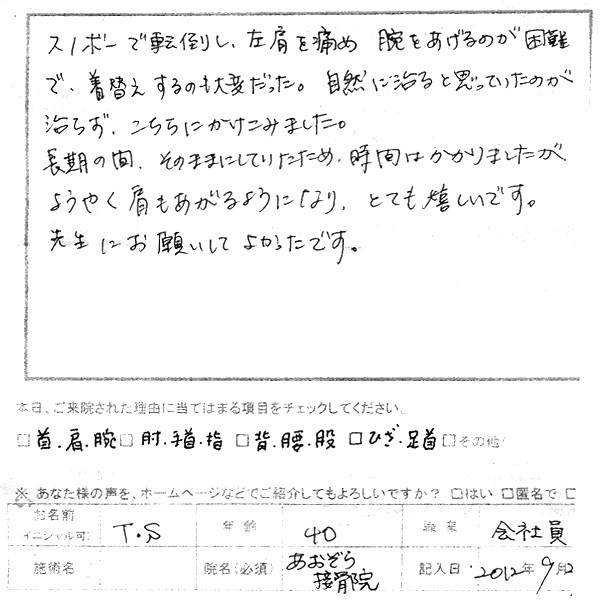 スノボーで転倒し、左肩を痛め 腕をあげるのが困難
で、着替えするのも大変だった。自然に治ると思っていたのが
治らず、こちらにかけこみました。
長期の間、そのままにしていたため、時間はかかりましたが
ようやく肩もあがるようになり、とても嬉しいです。
先生にお願いしてよかったです。
本日、ご来院された理由に当てはまる項目をチェックしてください。
□首.肩.腕□肘.手首.指 □背.腰.股 □ひざ.足首□その他
※ あなた様の声を、ホームページなどでご紹介してもよろしいですか? □はい □匿名で □
お名前 イニシャル可 T.S 年齢 40 職業 会社員
施術名 院名(必須) あおぞら接骨院 記入日 2012年9月2